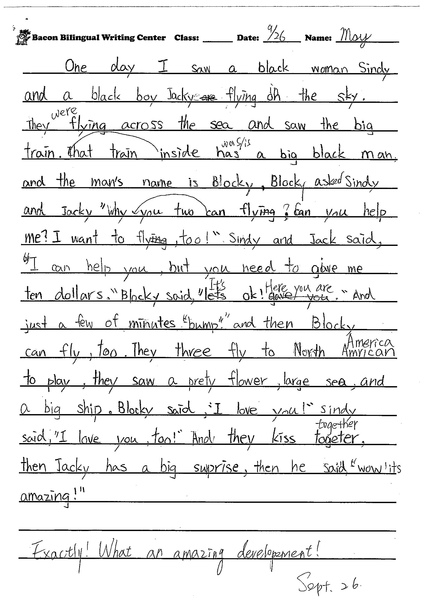 Bacon Bilingual Writing Center Class: Date: 9/26 Name: May
One day I saw a black woman Sindy
and a black boy Jacky are flying on the sky.
were
They flying across the sea and saw the big
was/is
train. that train inside has a big black man,
and the man's name is Blocky, Blocky asked Sindy
and Jacky "Why you two can flying? Can you help
me? I want to flying, too!" Sindy and Jack said,
"I can help you, but you need to gave me
It's Here you are
ten dollars." Blocky said, "lets ok! gave you." And
just a few of minutes "bump!" and then Blocky
America
can fly, too. They three fly to North Amrican
to play, they saw a prety flower, large sea, and
a big ship. Blocky said, "I love you!" Sindy
together
said, "I love you, too!" And they kiss togeter,
then Jacky has a big suprise, then he said, "wow! its
amazing!"
Exactly! What an amazing development!
Sept. 26